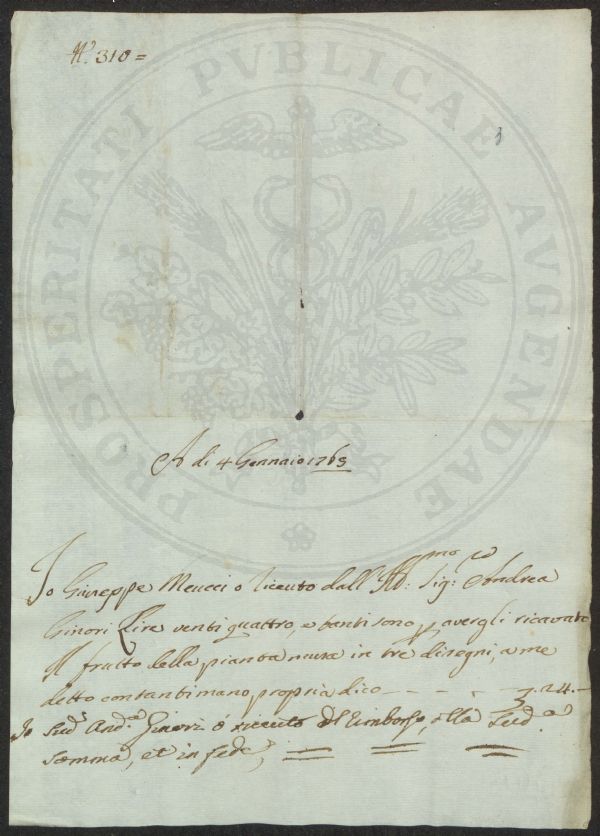 N.º 310=
PROSPERITATI PVBLICAE AVGENDAE
A di 4 Gennaio 1763
Io Giuseppe Meucci o riceuto dall Ill:mo Sig:re Andrea
Ginori Lire venti quattro, e tanti sono p avergli ricavato
il frutto della pianta nusa in tre disegni, a me
detto contanti mano propria dico - - - - 7. 24.-
Io Sud.º And.ª Ginori ò riceuto il rimborso, della Sud.ª
somma, et in fede,